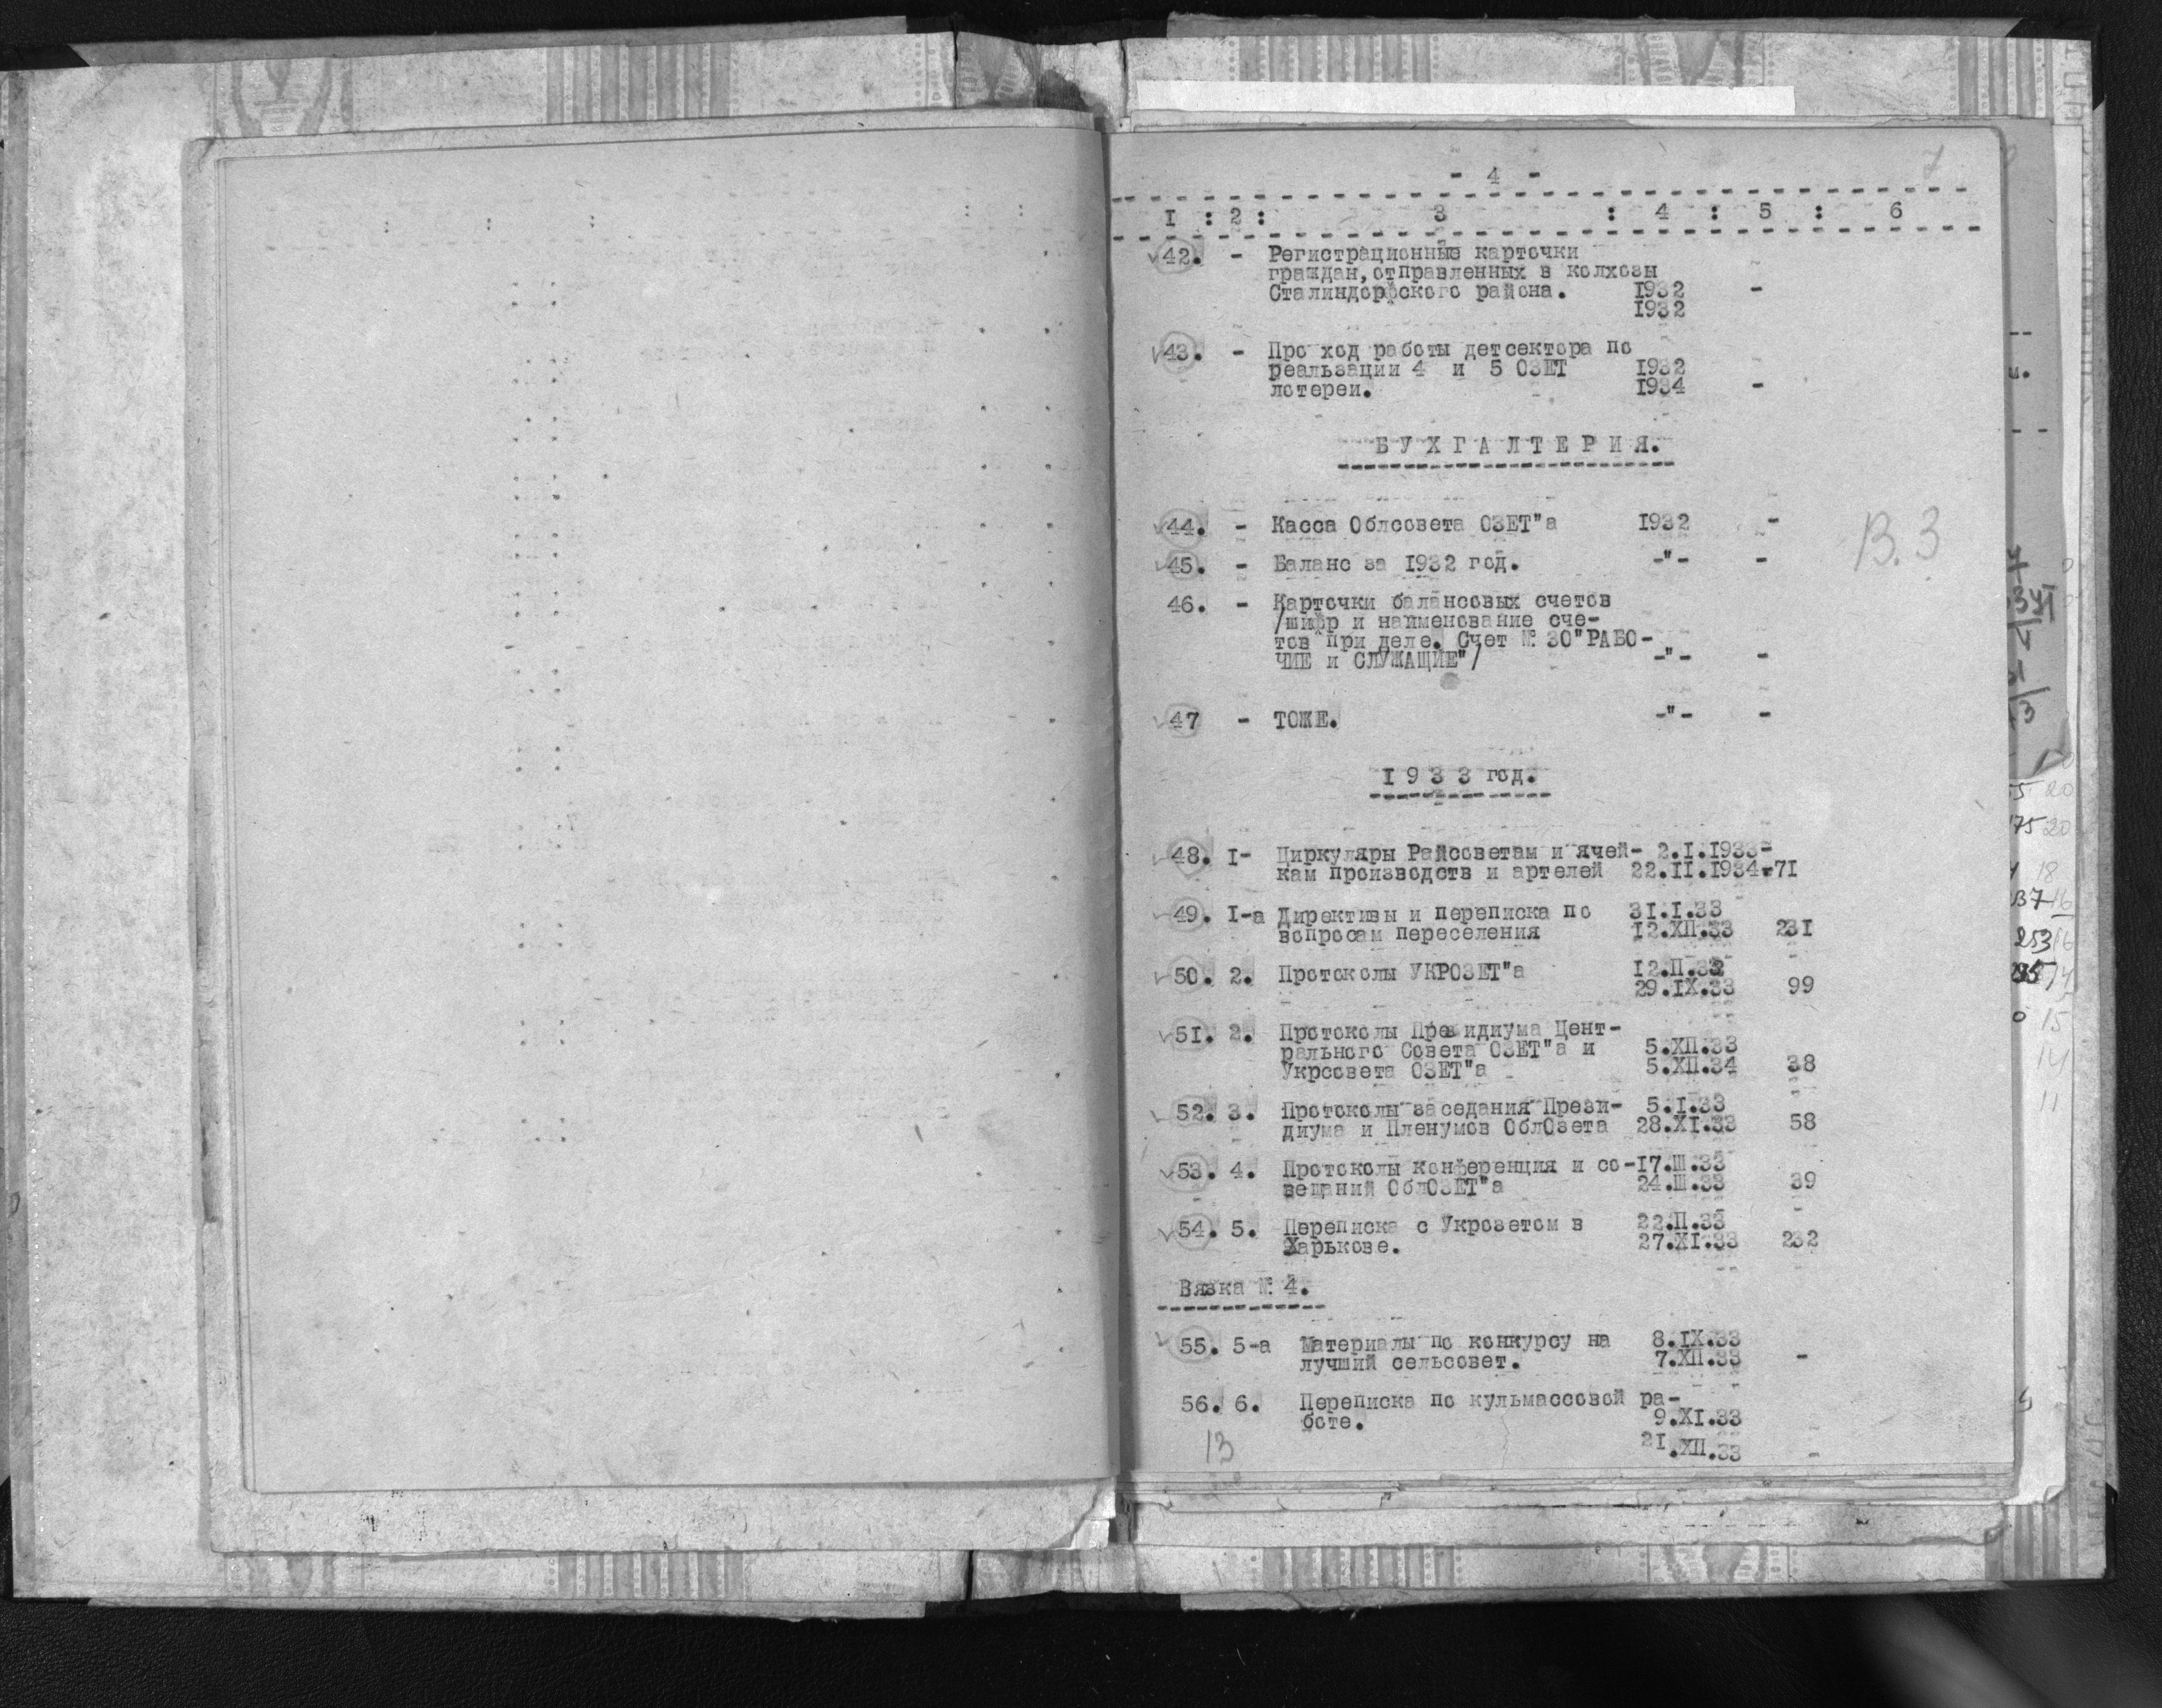 7
- 4 -
I : 2 : 3 : 4 : 5 : 6
42. - Регистрационные карточки
граждан, отправленных в колхозы
Сталиндорфского района. 1932 -
1932
43. - Про ход работы детсектора по
реальзации 4 и 5 ОЗЕТ 1932
лотереи. 1934 -
БУХГАЛТЕРИЯ.
44. - Касса Облсовета ОЗЕТ"а 1932 -
В.3
45. - Баланс за 1932 год. -"- -
46. - Карточки балансовых счетов
/шифр и наименование сче-
тов при деле. Счет №: 30"РАБО-
ЧИЕ и СЛУЖАЩИЕ"/ -"- -
47 - ТОЖЕ. -"- -
1933 год.
48. I- Циркуляры Райсоветам и ячей- 2.I.1933-
кам производств и артелей 22.II.1934.-71
49. I-а Директивы и переписка по 31.I.33
вопросам переселения 12.XII.33 231
50. 2. Протоколы УКРОЗЕТ"а 12.II.33
29.IX.33 99
51. 2. Протоколы Президиума Цент-
рального Совета ОЗЕТ"а и 5.XII.33
Укрсовета ОЗЕТ"а 5.XII.34 38
52. 3. Протоколы заседания Прези- 5.I.33
диума и Пленумов ОблОзета 28.XI.33 58
53. 4. Протоколы конференция и со- 17.III.33
вещаний ОблОЗЕТ"а 24.III.33 39
54. 5. Переписка с Укрозетом в 22.II.33
Харькове. 27.XI.33 232
Вязка №: 4.
55. 5-а Материалы по конкурсу на 8.IX.33
лучший сельсовет. 7.XII.33 -
56. 6. Переписка по культмассовой ра-
боте. 9.XI.33
13 21.XII.33 -